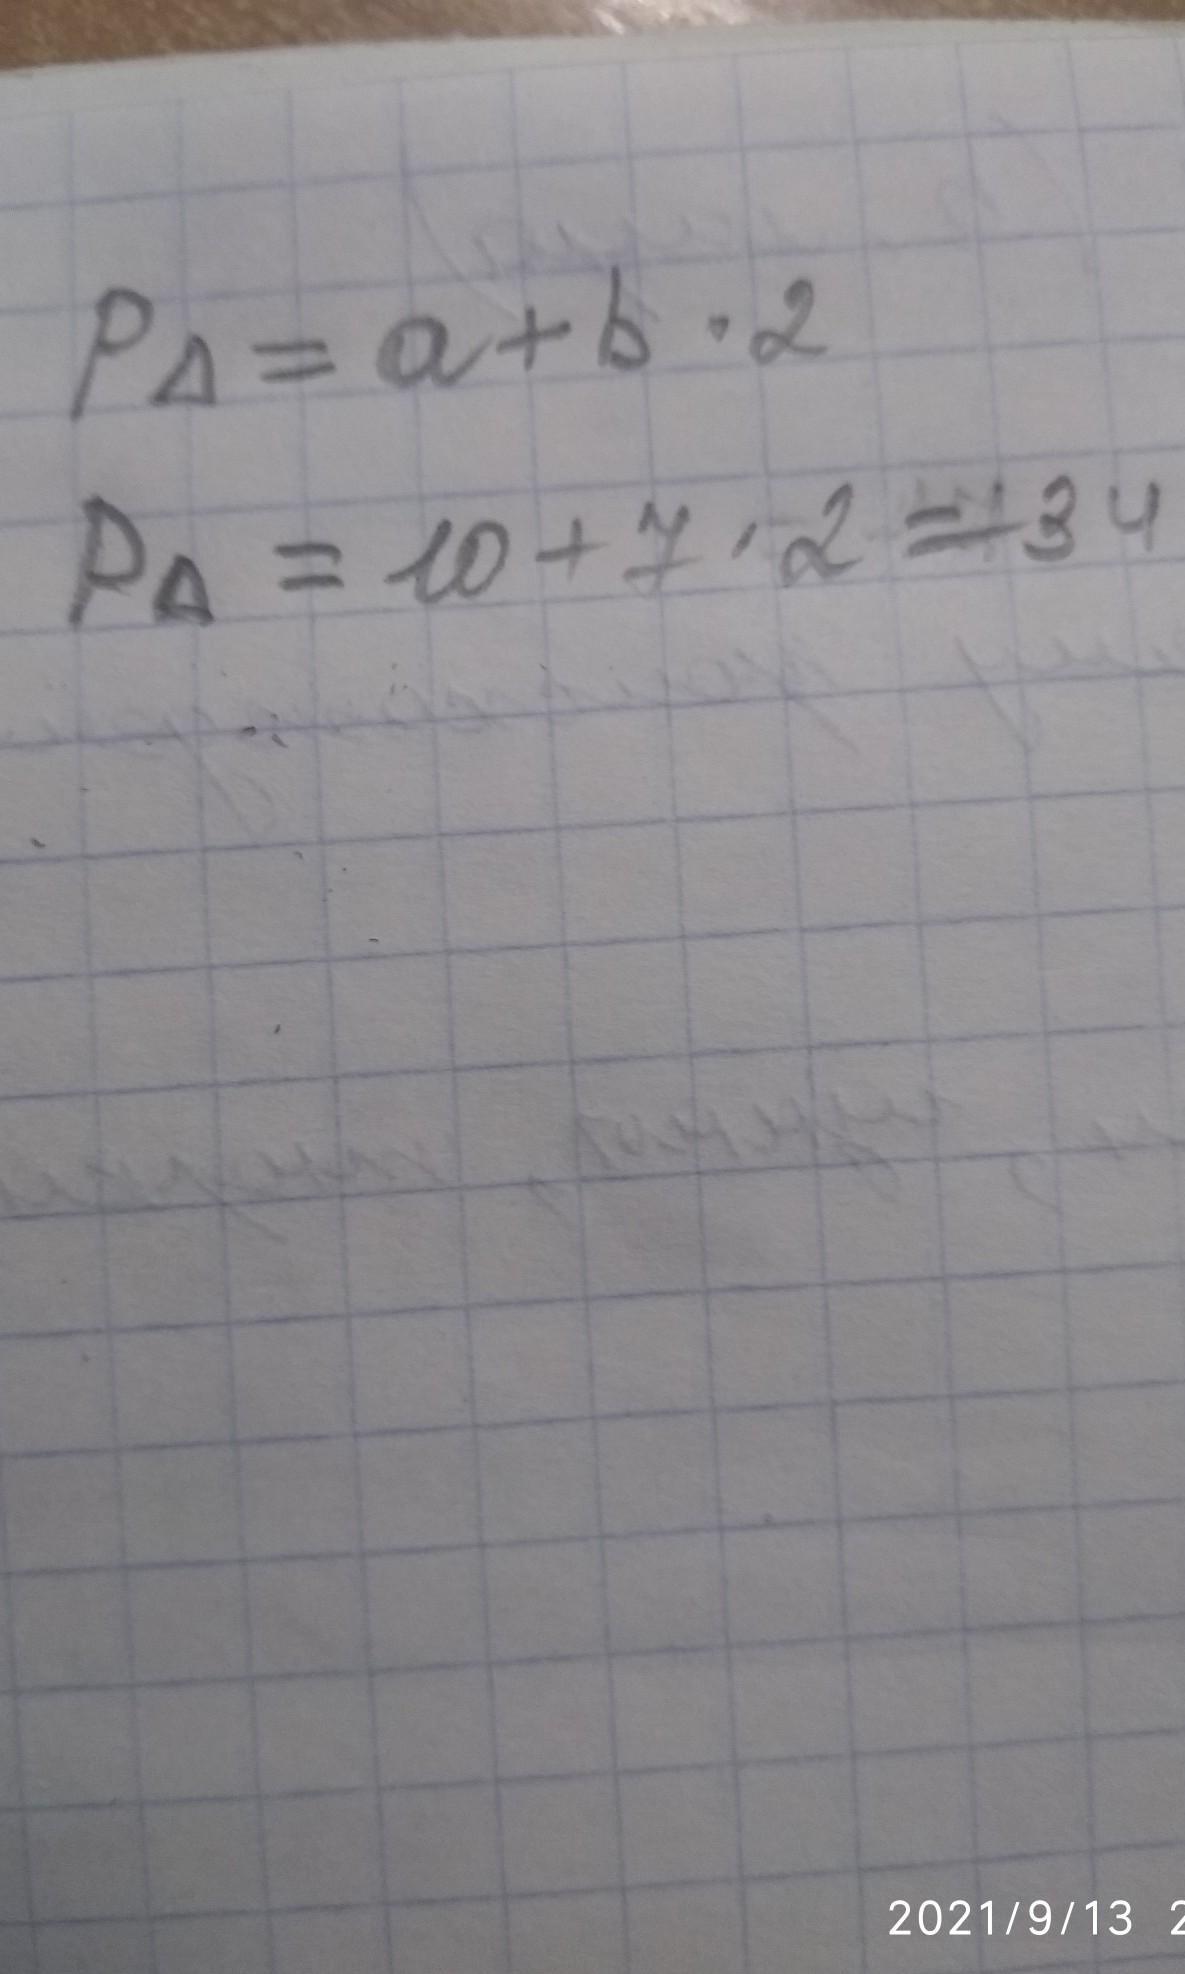 P△ = a + b · 2
P△ = 10 + 7 · 2 = 34
2021/9/13 2